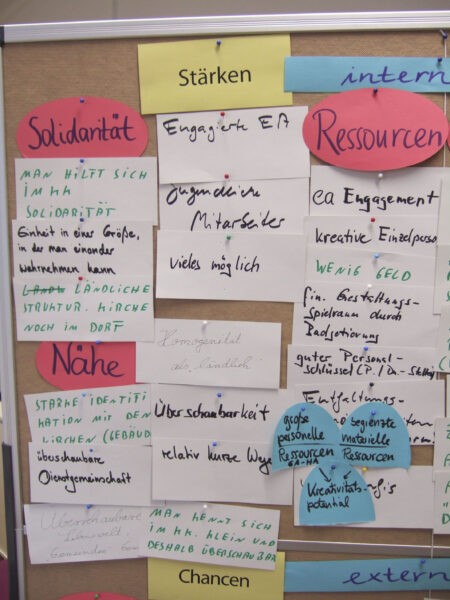 Stärken
intern
Solidarität
MAN HILFT SICH
IM KK
SOLIDARITÄT
Einheit in einer Größe,
in der man einander
wahrnehmen kann
LÄNDLICHE
STRUKTUR. KIRCHE
NOCH IM DORF
Nähe
STARKE IDENTIFI
KATION MIT DEN
KIRCHEN (GEBÄUD
überschaubare
Dienstgemeinschaft
Überschaubare
Engagierte EA
Jugendliche
Mitarbeiter
vieles möglich
Homogenität
als "ländlich"
Überschaubarkeit
relativ kurze Wege
MAN KENNT SICH
IM KK. KLEIN UND
DESHALB ÜBERSCHAUBAR
Ressourcen
ea Engagement
kreative Einzelperso
WENIG GELD
fin. Gestaltungs-
spielraum durch
Budgetierung
guter Personal-
schlüssel
Entfaltungs-
große
personelle
Ressourcen
EA-HA
begrenzte
materielle
Ressourcen
Kreativitäts-
potential
Chancen
extern